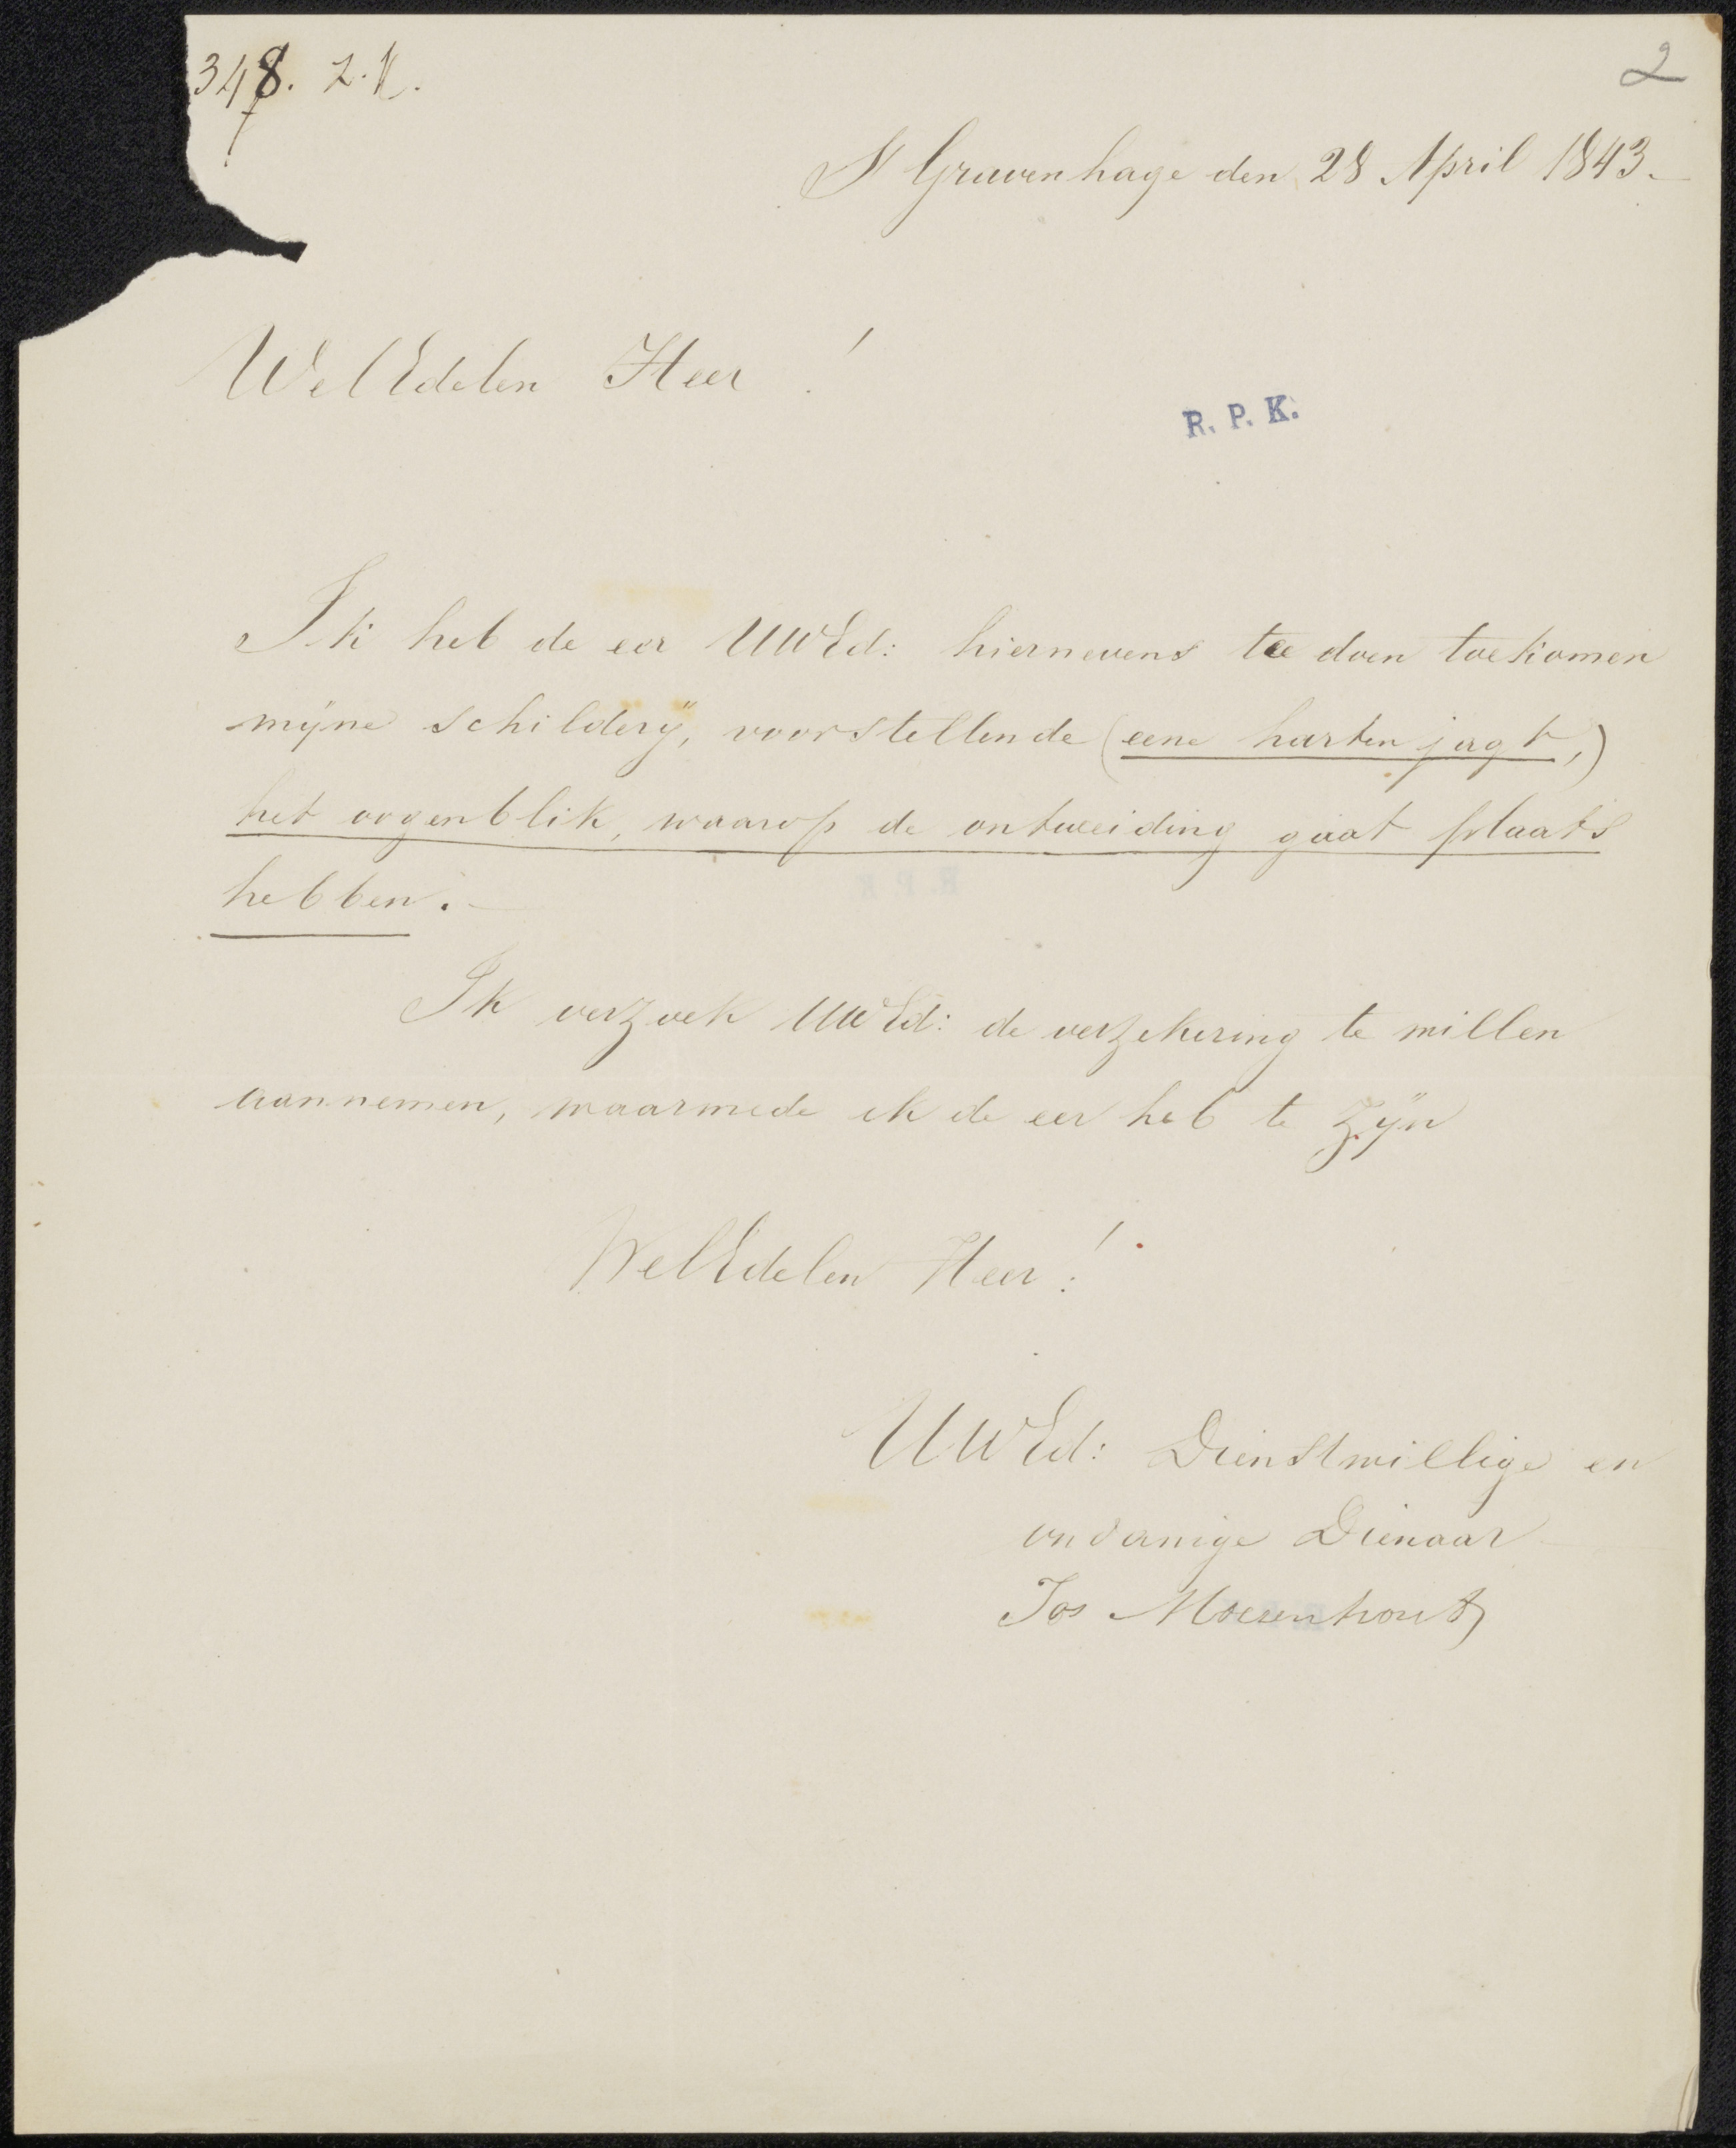 348. Z.K.
2
S Gravenhage den 28 April 1843.
WelEdelen Heer!
R. P. K.
Ik heb de eer UWEd: hiernevens te doen toekomen
mijne schilderÿ, voorstellende (eene harten jagt,)
het oogenblik, waarop de ontweiding gaat plaats
hebben.
Ik verzoek UWEd: de verzekering te willen
aannemen, waarmede ik de eer heb te zÿn
WelEdelen Heer!
UWEd: Dienstwillige en
ondanige Dienaar
Jos Moerenhout